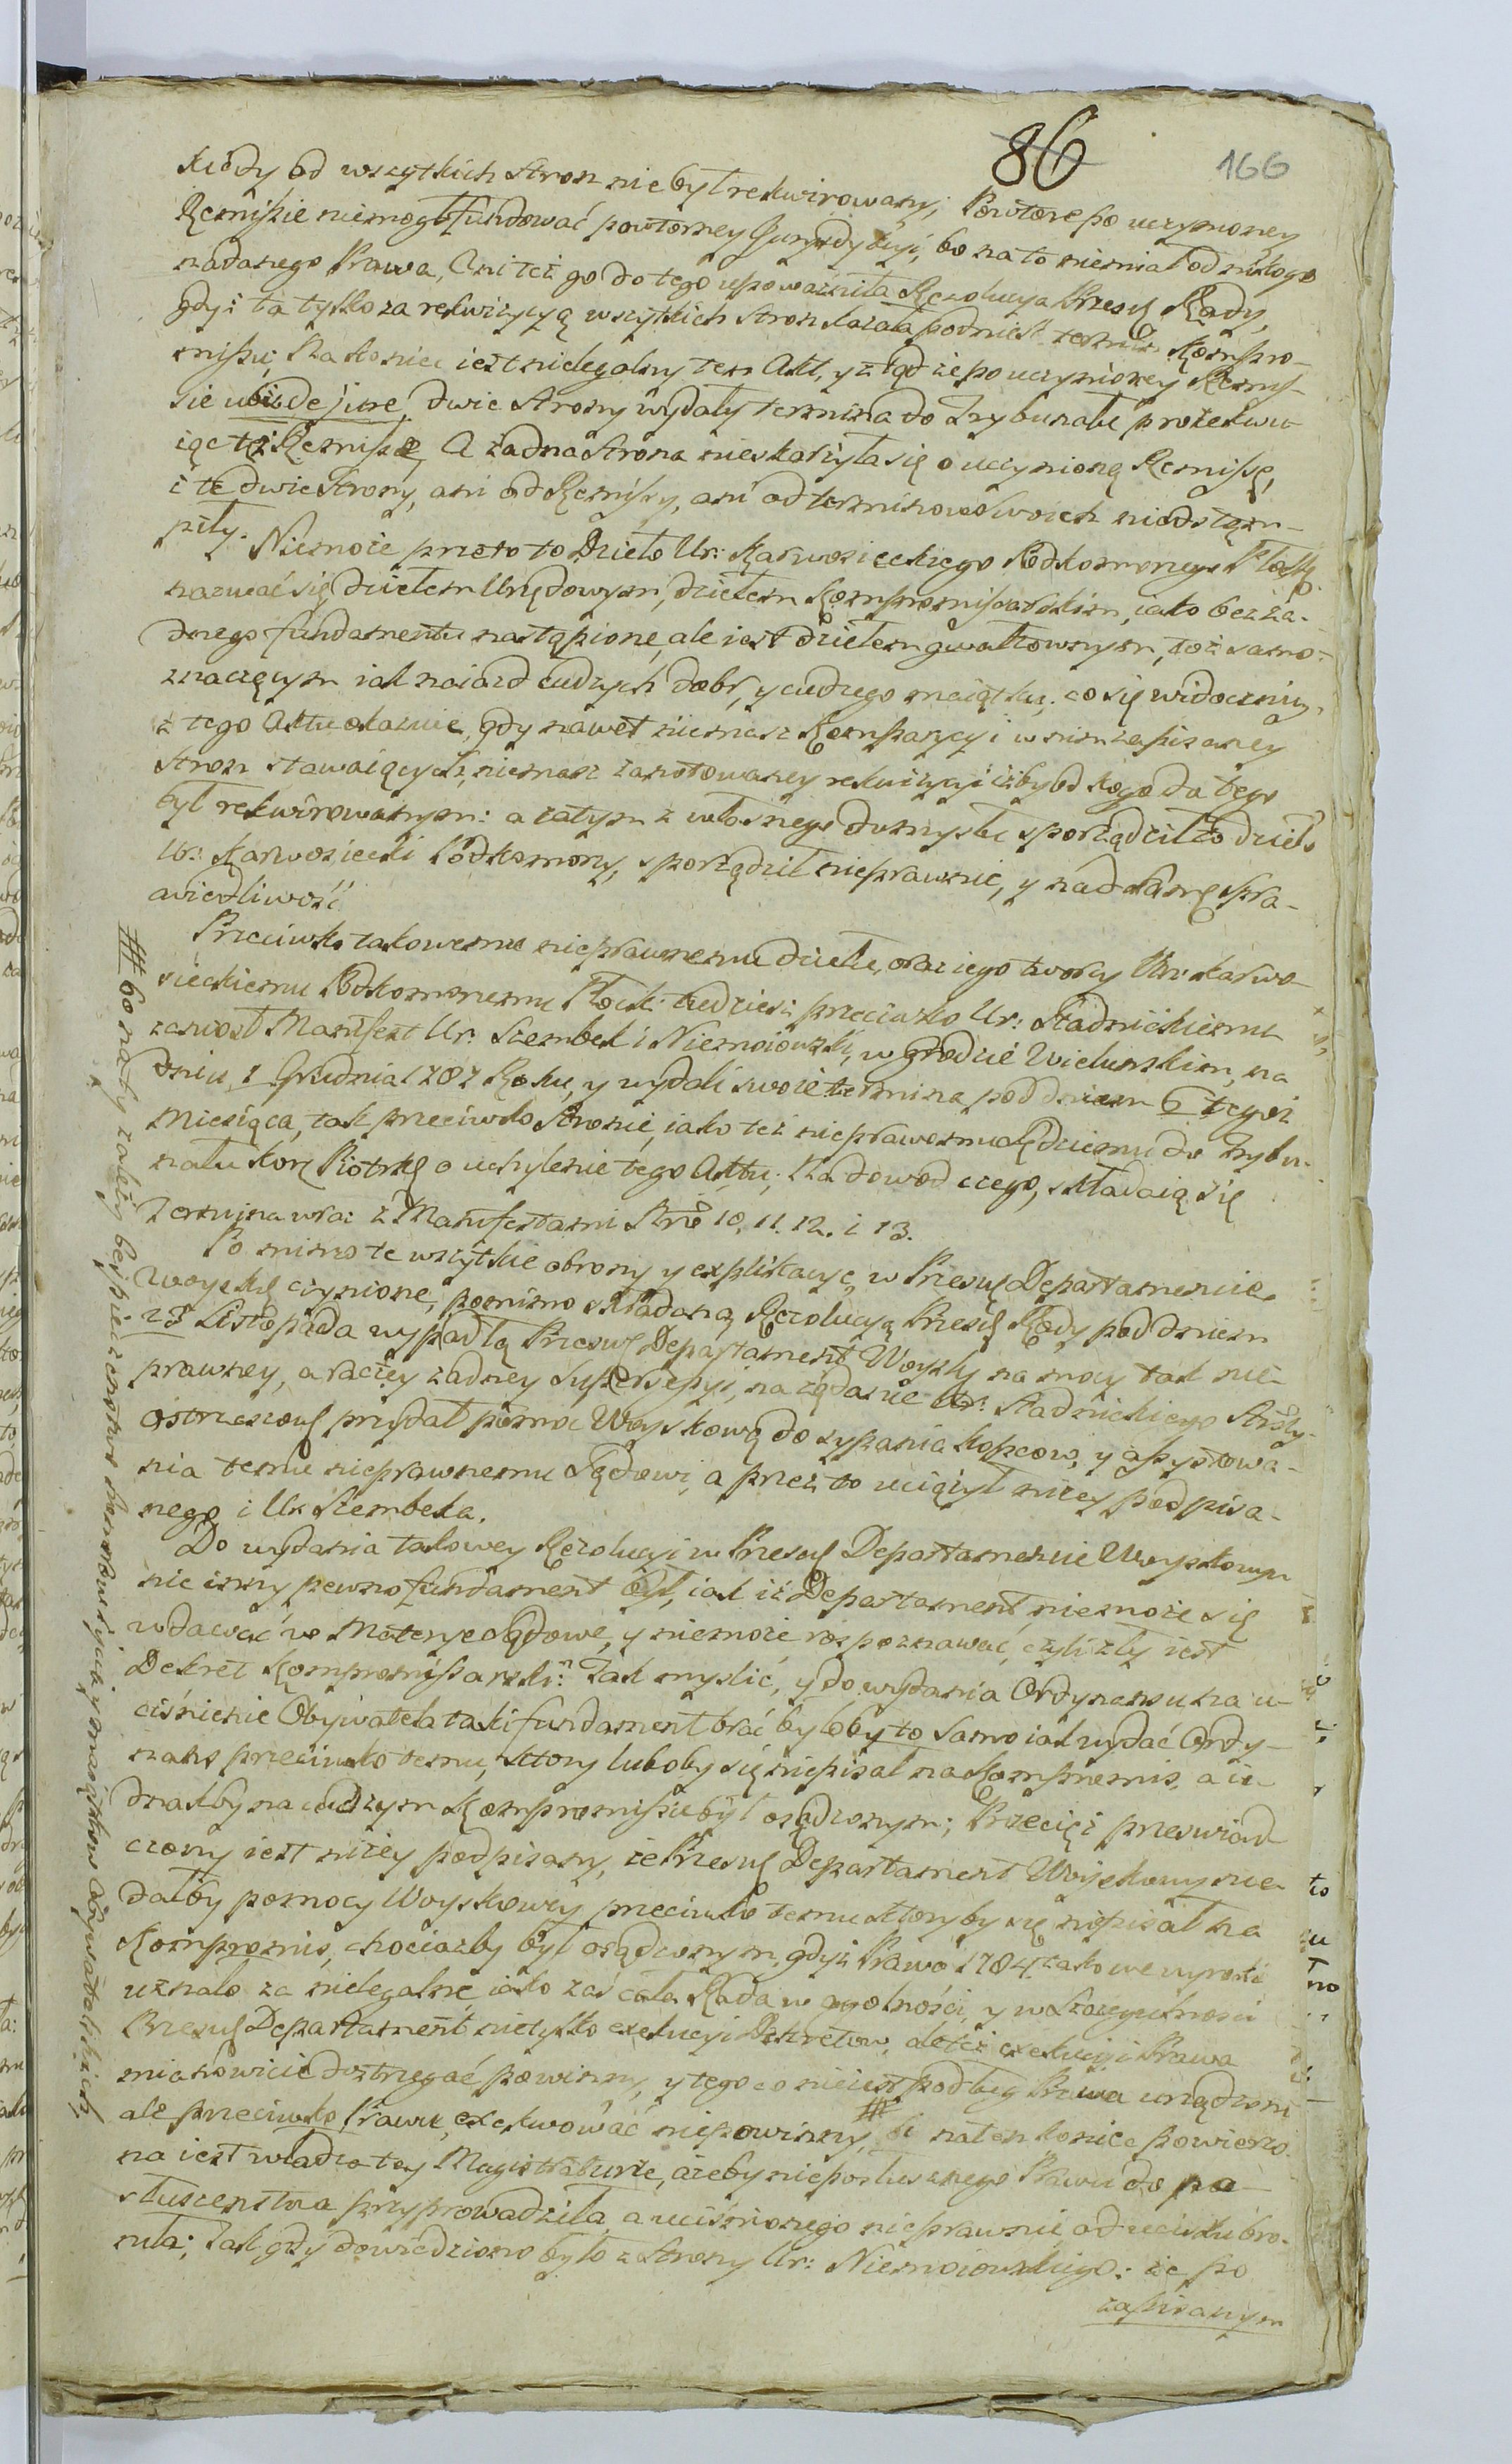 86
166
kiedy od wszytkich stron nie był rekwirowany; Powtore po uczynioney
Remissie niemogł fundować powtorney Jurysdykcyi, bo na to niemiał od nikogo
nadanego Prawa, Ani też go do tego upoważniła Rezolucya Przesw: Rady,
gdyż ta tylko za rekwizycyą wszytkich stron kazała podnieść termin Kompro-
missu; Na koniec iest nielegalny ten Akt, y ztąd że po uczynioney Remis-
sie ubi de jure, dwie strony wydały termina do Trybunału prosekwu-
iąc tęż Remissę, A żadna strona nieskarżyła się o uczynioną Remissę,
i te dwie strony, ani od Remissy, ani od terminow swoich nieodstąm-
piły. Niemoże przeto to Dzieło Ur: Karwosieckiego Podkomorzego Płockg
nazwać się dziełem Urzędowym, dziełem Kompromissarskim, iako bez ża-
dnego fundamentu nastąpione, ale iest dziełem gwałtownym, toż samo
znaczącym iak naiazd cudzych dobr, y cudzego maiątku; co się widoczniey
z tego Aktu okazuie, gdy nawet niemasz Komparycyi w nim zapisaney
stron stawaiących, niemasz zanotowaney rekwizycyi iżby od kogo do tego
był rekwirowanym: a zatym z własnego domysłu sporządził to dzieło
Ur: Karwosiecki Podkomorzy, sporządził nieprawnie, y nad samę spra-
wiedliwość
Przeciwko takowemu nieprawnemu dziełu, oraz iego tworcy Ur: Karwo-
sieckiemu Podkomorzemu Płock: tudzież przeciwko Ur: Stadnickiemu
zaniosł Manifest Ur: Szembek i Niemoiowski, w Grodzie Wieluńskim, na
dniu 1 Grudnia 1787 Roku, y wydali swoie termina pod dniem 6 tegoż
Miesiąca, tak przeciwko stronie, iako też nieprawemu Sędziemu do Trybu-
nału Kor: Piotrk: o uchylenie tego Aktu; Na dowod czego, składaią się
Termina wraz z Manifestami Nro 10. 11. 12. i 13.
Po mimo te wszytkie obrony y explikacye, w Przesw: Departamencie
Woysk: czynione, pomimo składaną Rezolucyą Przesw: Rady pod dniem
23 Listopada wypadłą Przesw: Departament Woysk: na mocy tak nie-
prawney, a raczey żadney Susepcyi, na żądanie Ur: Stadnickiego Stty
Ostrzeszow: przydał pomoc Woyskową do sypania kopcow, y assystowa-
nia temu nieprawnemu Sądowi, a przez to uciążył niżey podpisa-
nego i Ur Szembeka.
Do wydania takowey Rezolucyi w Przesw: Departamencie Woyskowym
nie inny pewno fundament był, iak iż Departament niemoże się
wdawać w Materye sądowe, y niemoże rospoznawać, czyli zły iest
Dekret Kompromissarski: Tak myslić, y do wydania Ordynansu na u-
ciśnienie Obywatela taki fundament brać, byłoby to samo iak wydać Ordy-
nans przeciwko temu, ktory luboby się niepisał na Kompromis, a ie-
dnakby na cudzym Kompromissie był osądzonym; Przecięż przeswiad-
czony iest niżey podpisany, że Przesw: Departament Woyskowy nie
dałby pomocy Woyskowey przeciwko temu ktoryby się niepisał na
Kompromis, chociażby był osądzonym, gdyż Prawo 1784. takowe wyroki
uznało za nielegalne, iako zaś cała Rada w ogolności, y w Szczegulności
Przesw: Departament nietylko exekucyi Dekretow, ale też exekucyi Prawa
mianowicie dostrzegać powinny, y tego co nieiest podług Prawa urządzone
ale przeciwko Prawu, exekwować niepowinny, # i na ten koniec powierzo-
na iest władza tey Magistraturze, ażeby nieposłusznego Prawu do po-
słuszenstwa przyprowadziła, a uciśnionego nieprawnie od ucisku bro-
niła; Tak gdy dowiedziono było z strony Ur: Niemoiowskiego: że po
zapisanym
# bo na tym zależy bespieczeństwo Osob y maiątkow Obywatelskich